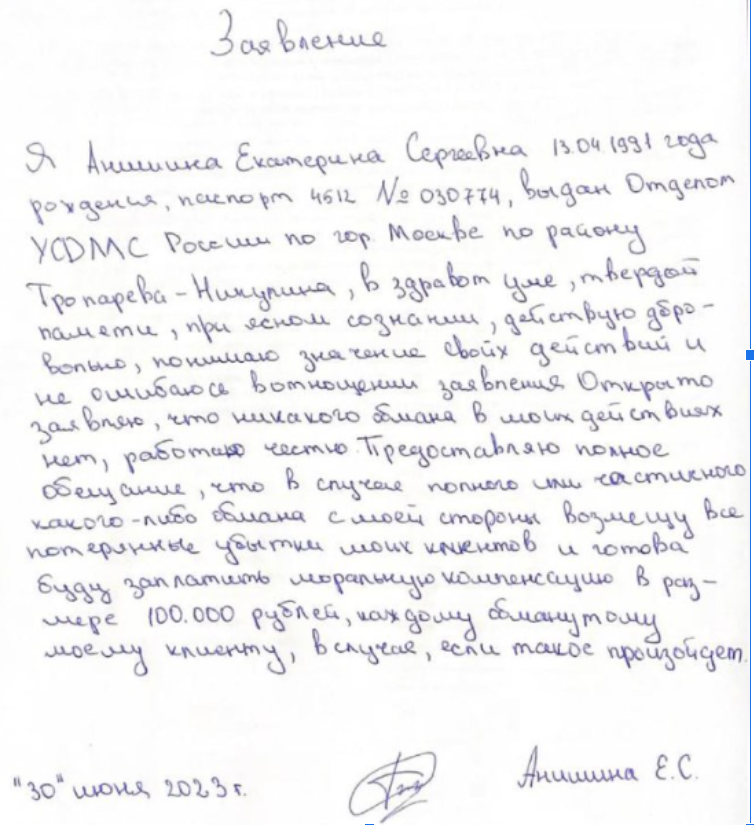 Заявление
Я Анишина Екатерина Сергеевна 13.04.1991 года
рождения, паспорт 4512 № 030774, выдан Отделом
УФМС России по гор. Москве по району
Тропарева-Никулина, в здравом уме, твердой
памяти, при ясном сознании, действую добро-
вольно, понимаю значение своих действий и
не ошибаюсь в отношении заявления Открыто
заявляю, что никакого обмана в моих действиях
нет, работаю честно. Предоставляю полное
обещание, что в случае полного или частичного
какого-либо обмана с моей стороны возмещу все
потерянные убытки моих клиентов и готова
буду заплатить моральную компенсацию в раз-
мере 100.000 рублей, каждому обманутому
моему клиенту, в случае, если такое произойдет.
"30" июня 2023 г. Анишина Е.С.